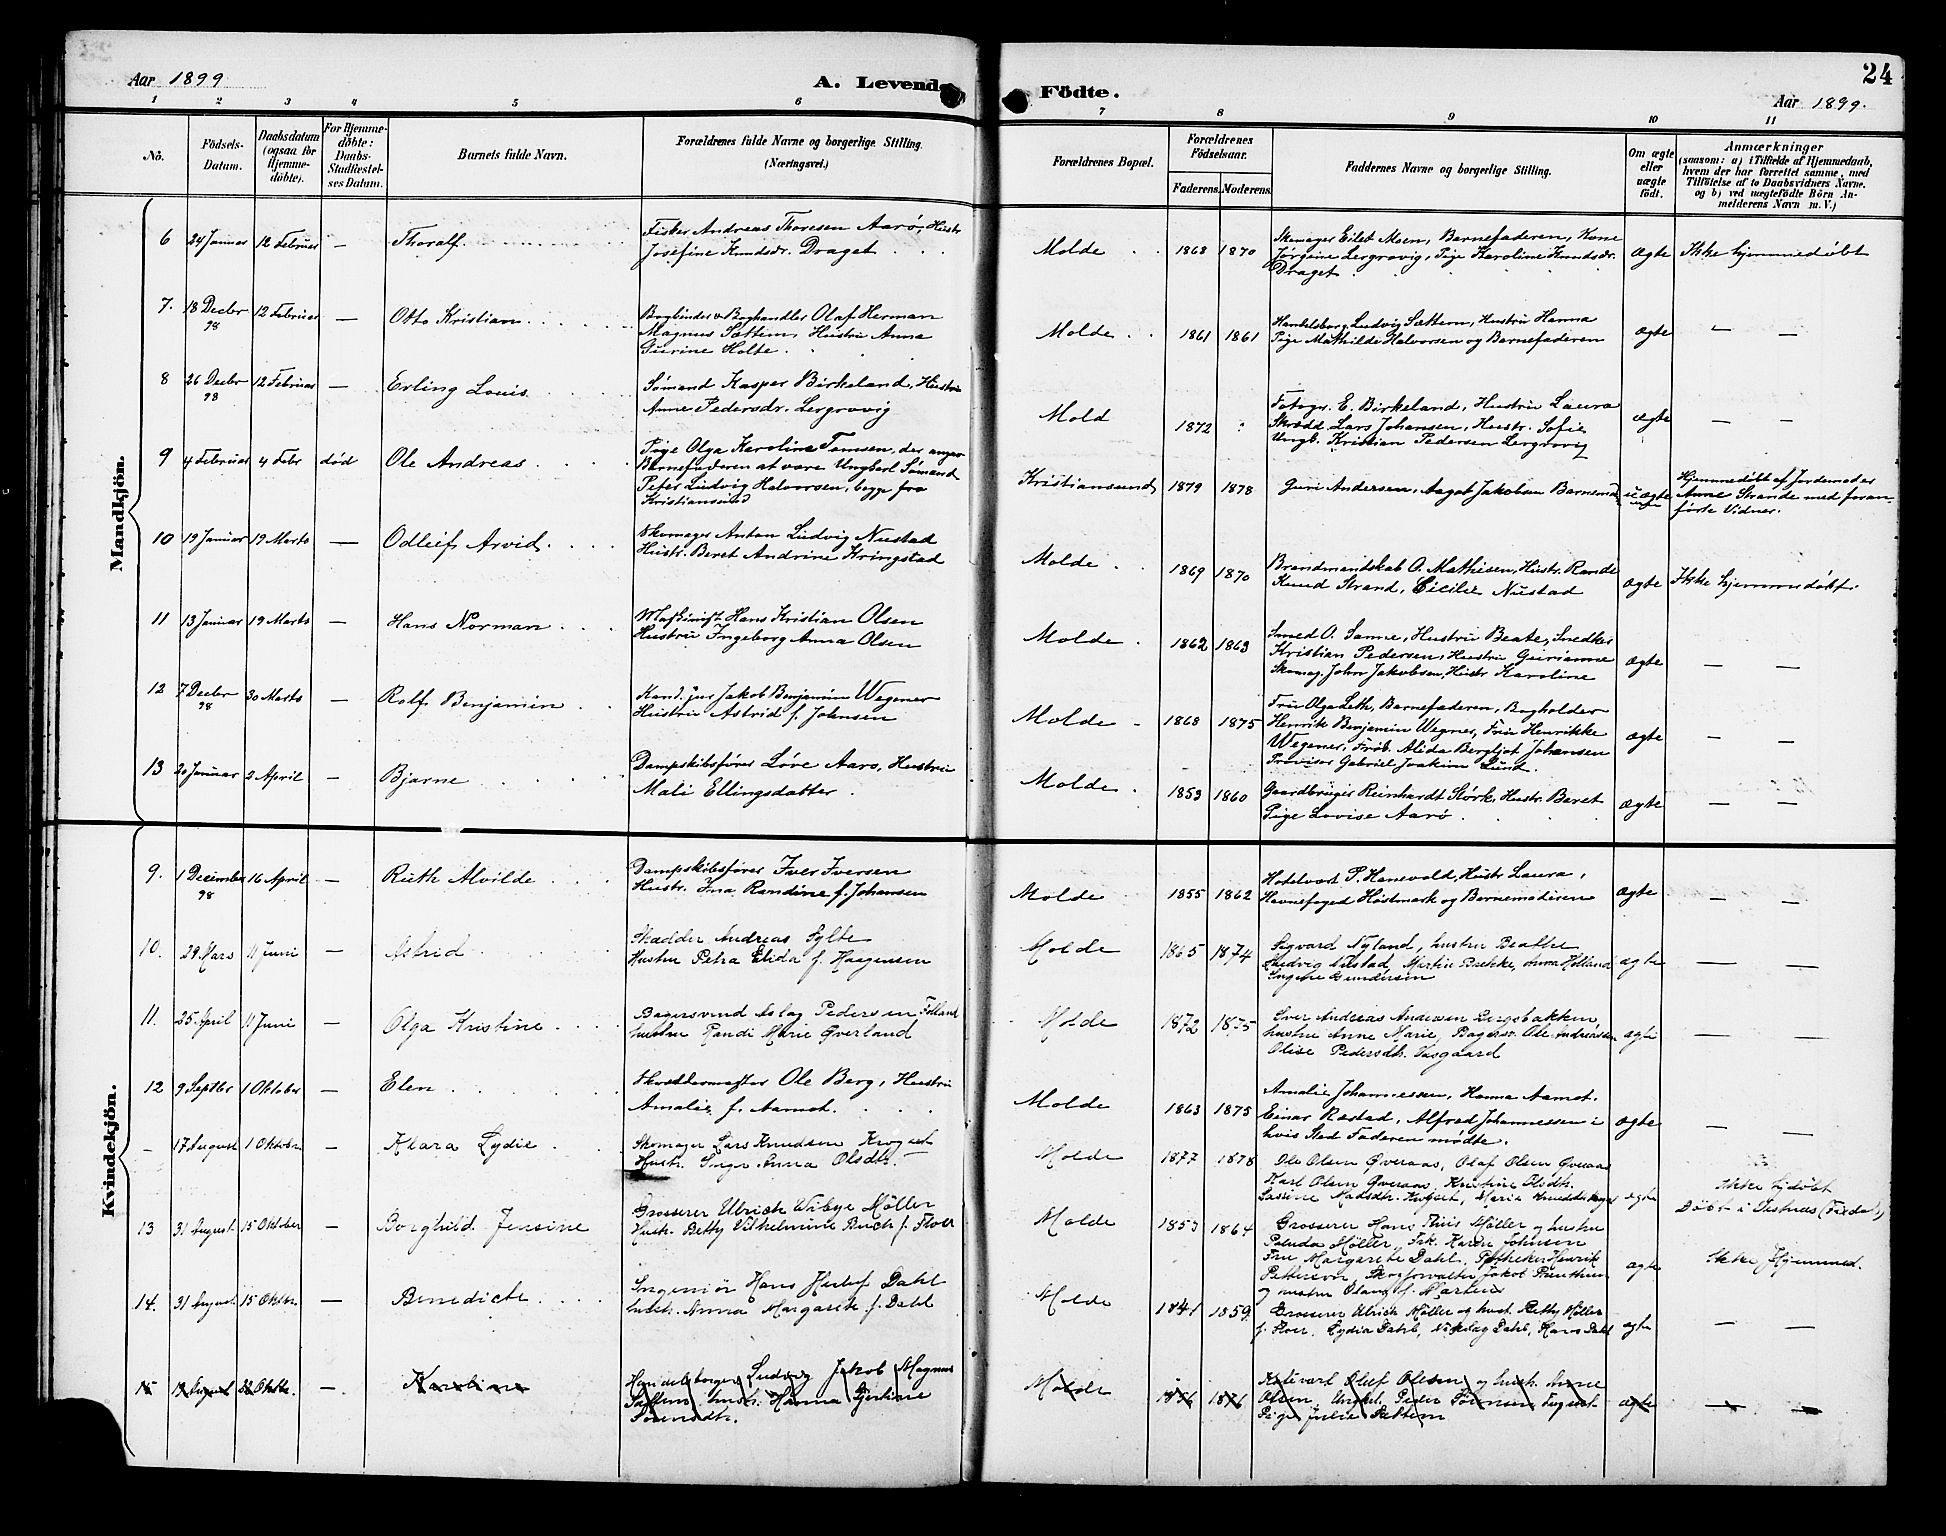 Aar 1899
A. Levende
Födte.
24
Aar 1899.
1 2 3 4 5 6 7 8 9 10 11
No.
Födsels-
Datum.
Daabsdatum
(ogsaa for
Hjemme-
döbte).
For Hjemme-
döbte:
Daabs-
Stadfæstel-
ses Datum.
Barnets fulde Navn.
Forældrenes fulde Navne og borgerlige Stilling.
(Næringsvei.)
Forældrenes Bopæl.
Forældrenes
Födselsaar.
Faderens. Moderens.
Faddernes Navne og borgerlige Stilling.
Om ægte
eller
uægte
födt.
Anmærkninger
(saasom: a) i Tilfælde af Hjemmedaab,
hvem der har forrettet samme, med
Tilföielse af to Daabsvidners Navne.
og b) ved uægtefödte Börn An-
melderens Navn m. V.)
Mandkjön.
6 24 Januar 12 Februar — Thoralf.
Fisker Andreas Thoresen Aarø, Hustr
Josefine Knudsdr. Draget
Molde 1868 1870
Skomager Eilet Moen, Barnefaderen, Kone
Jørgine Lergrovig, Pige Karoline Knudsdr.
Draget
Ægte Ikke hjemmedøbt
7. 18 Decbr 98 12 Februar — Otto Kristian
Bogbinder & Boghandler Olaf Herman
Magnus Sættem, Hustru Anna
Gurine Holte.
Molde 1861 1861
Handelsborg. Ludvig Sættem, Hustru Hanna
Pige Mathilde Halvorsen og Barnefaderen
ægte — —
8 26 Decbr 98 12 Februar — Erling Louis
Sømand Kasper Birkeland, Hustru
Anne Pedersdr. Lergrovig
Mold 1872
Fotogr. E. Birkeland, Hustru Laura
Skrædd Lars Johansen, Hustr. Sofie
Ungk. Kristian Pedersen Lergrovig
ægte — —
9 4 Februar 4 Febr død Ole Andreas
Pige Olga Karoline Tomsen, der angav
Barnefaderen at være Ungkarl Sømand
Peter Ludvig Halvorsen, begge fra
Kristiansund
Kristiansund 1879 1878
Guri Andersen, Aagot Jakobsen Barnemd
uægte
Hjemmedøbt af Jordemoder
Anne Strande med foran-
førte Vidner.
10 19 Januar 19 Marts — Odleif Arvid
Skomager Anton Ludvig Nustad
Hustr. Beret Andrine Kringstad
Molde 1869 1870
Brandmandskab O. Mathisen, Hustr. Rande
Knud Strand, Cicilie Nustad
ægte Ikke hjemmedøbt
11 13 Januar 19 Marts — Hans Norman
Hans Kristian Olsen
Hustru Ingeborg Anna Olsen
Molde 1862 1863
Smed O. Sanne, Hustru Beate, Snedker
Kristian Pedersen, Hustru Gurianne
Skomag. John Jakobsen, Hustr Karoline
ægte — —
12 7 Decbr 98 30 Marts — Rolf Benjamin
Kand. jur Jakob Benjamin Wegener
Hustru Astrid f. Johnsen
Molde 1868 1875
Fru Olga Leth, Barnefaderen, Bogholder
Henrik Benjamin Wegner, Fru Henrikke
Wegener, Frøk. Alida Bergljot Johansen
Provisor Gabriel Joakim Lund.
ægte — —
13 20 Januar 2 April — Bjarne
Dampskibsfører Løve Aarø, Hustru
Mali Ellingsdatter
Molde 1853 1860
Gaardbruger Reinhardt Stórk, Hustr. Beret
Pige Lovise Aarø
ægte — —
Kvindekjön.
9. 1 December 98 16 April — Ruth Alvilde
Dampskibsfører Iver Iversen
Hustr. Ina Randine f. Johansen
Molde 1855 1862
Hotelvært P. Hanevold, Hustr Laura,
Havnefoged Høstmark og Barnemoderen
ægte — —
10. 29 Mars 11 Juni — Astrid
Skædder Andreas Sylte
Hustru Petra Elida f. Haagensen
Molde 1865 1874
Sigvard Nyland, hustru Beathe
Ludvig Nustad, Martin Brekke, Anna Holland
Ingine Gundersen
ægte — —
11. 25 April 11 Juni — Olga Kristine
Bagersvend Aslag Pedersen Folland
hustru Randi Marie Øverland
Molde 1872 1875
Iver Andreas Andersen Lergsbakken
hustru Anne Marie, Bagersv. Ole Andreassen
Olise Pedersdtr. Vesgaard
ægte — —
12 9 Septbr 1 Oktober — Elen
Skreddermester Ole Berg, Hustru
Amalie f. Aamot.
Molde 1863 1875
Amalie Johannessen, Hanna Aamot.
Einar Ræstad, Alfred Johannessen i
hvis Sted Faderen mødte.
ægte — —
— 17 August 1 Oktober — Klara Lydie
Skomager Lars Knudsen Krogset
Hustr. Inga Anna Olsdtr.
Molde 1877 1878
Ole Olsen Øveraas, Olaf Olsen Øveraas
Karl Olsen Øveraas, Kristine Olsdtr.
Lassine Madsdtr.
ægte
Ikke hjdøbt
Døbt i
13 31 August 15 Oktober — Borghild Jensine
Grosserer Ulrich Wibye Møller
Hustr. Betty Vilhelmine Buch f. Floer
Molde 1853 1864
Grosserer Hans Thiis Møller og hustru
Paluda Møller, Frk. Karen Johnsen
Fru Margarete Dahl, Apotheker Henrik
Petterson, Skogforvalter Jakob
og hustru Olaug f. Martens
ægte Ikke Hjemmed.
14. 31 August 15 Oktbr. — Benedicte
Ingeniør Hans Herlof Dahl
hustr. Anna Margarete f. Dahl
Molde 1841 1859
Grosserer Ulrich Møller og hust. Betty Møller
f. Floer, Lydia Dahl, Nikolay Dahl, Hans Dahl
ægte — —
15 19 August 22 Oktbr. — Karoline
Handelsborger Ludvig Jakob Magnus
Sættem, hustr. Hanna Gjertine
Sørensdtr.
Molde 1856 1876
Olef Olesen og hustr. Anne
Olsen, Ungkl. Peder Sørensen
Pige Julie Sættem
ægte — —